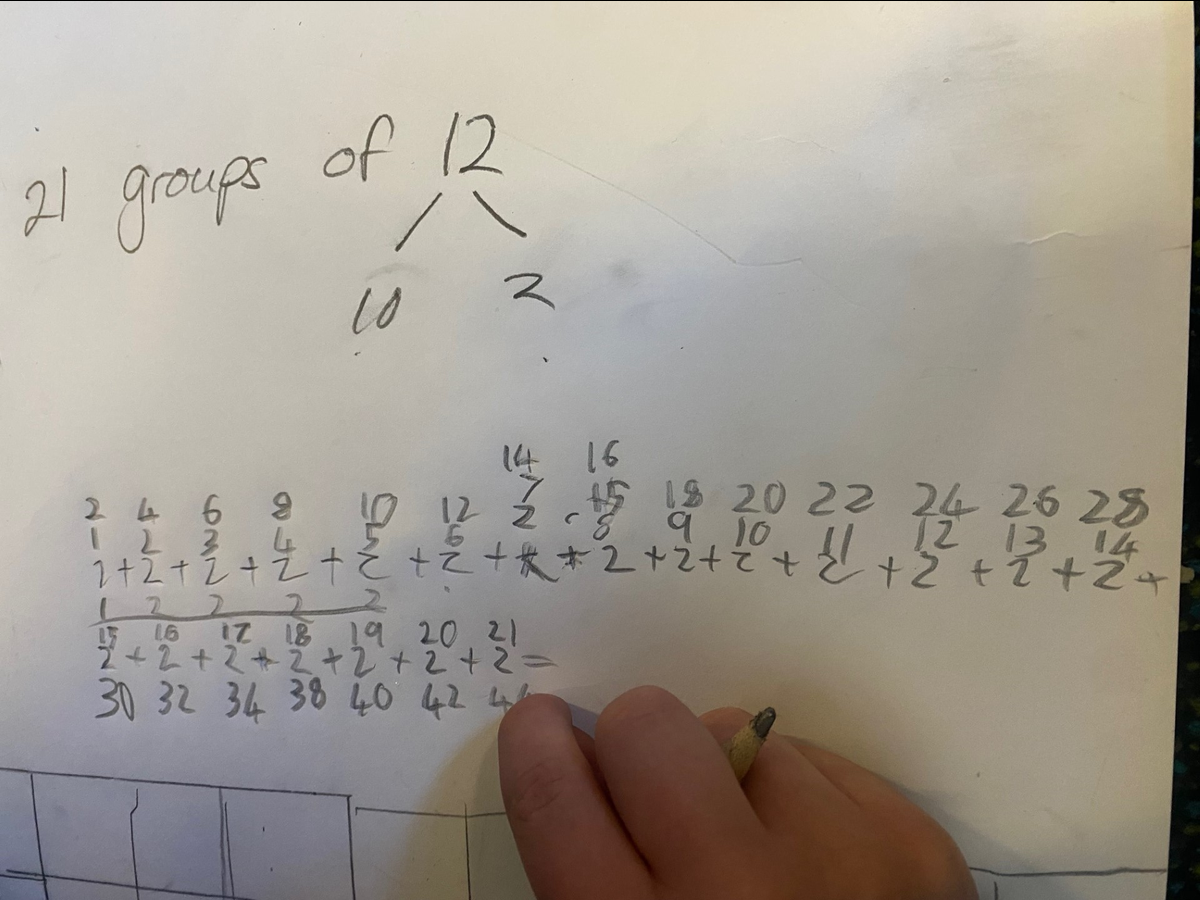 21 groups of 12
10 2
14 16
2 4 6 8 10 12 7 15 18 20 22 24 26 28
1 2 3 4 5 6 2 8 9 10 11 12 13 14
2 + 2 + 2 + 2 + 2 + 2 + + 2 + 2 + 2 + 2 + 2 + 2 + 2 +
1 2 2 2 2
15 16 17 18 19 20 21
2 + 2 + 2 + 2 + 2 + 2 + 2 =
30 32 34 38 40 42